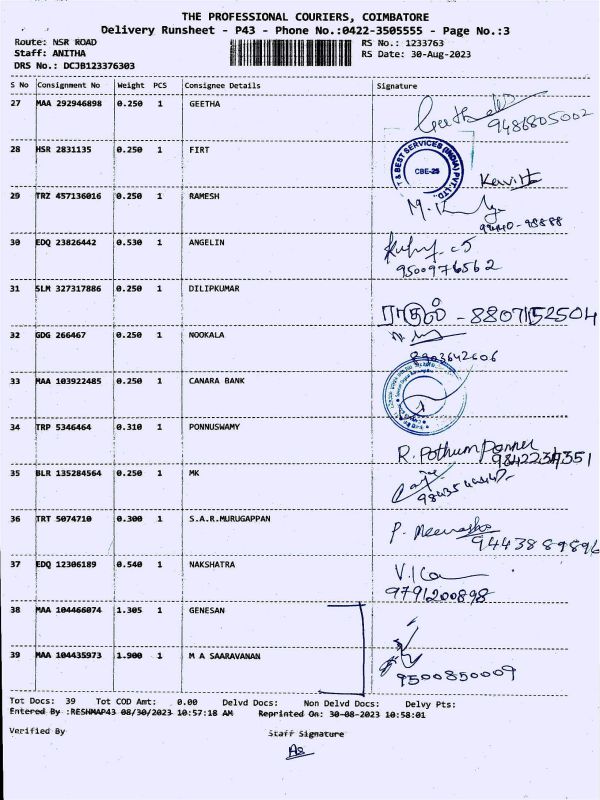 THE PROFESSIONAL COURIERS, COIMBATORE
Delivery Runsheet - P43 - Phone No.:0422-3505555 - Page No.:3
Route: NSR ROAD RS No.: 1233763
Staff: ANITHA RS Date: 30-Aug-2023
DRS No.: DCJB123376303
S No Consignment No Weight PCS Consignee Details Signature
27 MAA 292946898 0.250 1 GEETHA
9486805002
28 HSR 2831135 0.250 1 FIRT
& BEST SERVICES (INDIA) PVT. LTD. CBE-25
Kavitha
29 TRZ 457136016 0.250 1 RAMESH
30 EDQ 23826442 0.530 1 ANGELIN
9500976562
31 SLM 327317886 0.250 1 DILIPKUMAR
ராகுல் - 8807152504
32 GDG 266467 0.250 1 NOOKALA
8903642606
33 MAA 103922485 0.250 1 CANARA BANK
34 TRP 5346464 0.310 1 PONNUSWAMY
R. Pothum Ponnu
35 BLR 135284564 0.250 1 MK
36 TRT 5074710 0.300 1 S.A.R.MURUGAPPAN
P. Meenaksh
9443889896
37 EDQ 12306189 0.540 1 NAKSHATRA
9791200898
38 MAA 104466074 1.305 1 GENESAN
39 MAA 104435973 1.900 1 M A SAARAVANAN
9500850009
Tot Docs: 39 Tot COD Amt: 0.00 Delvd Docs: Non Delvd Docs: Delvy Pts:
Entered By :RESHMAP43 08/30/2023 10:57:18 AM Reprinted On: 30-08-2023 10:58:01
Verified By Staff Signature